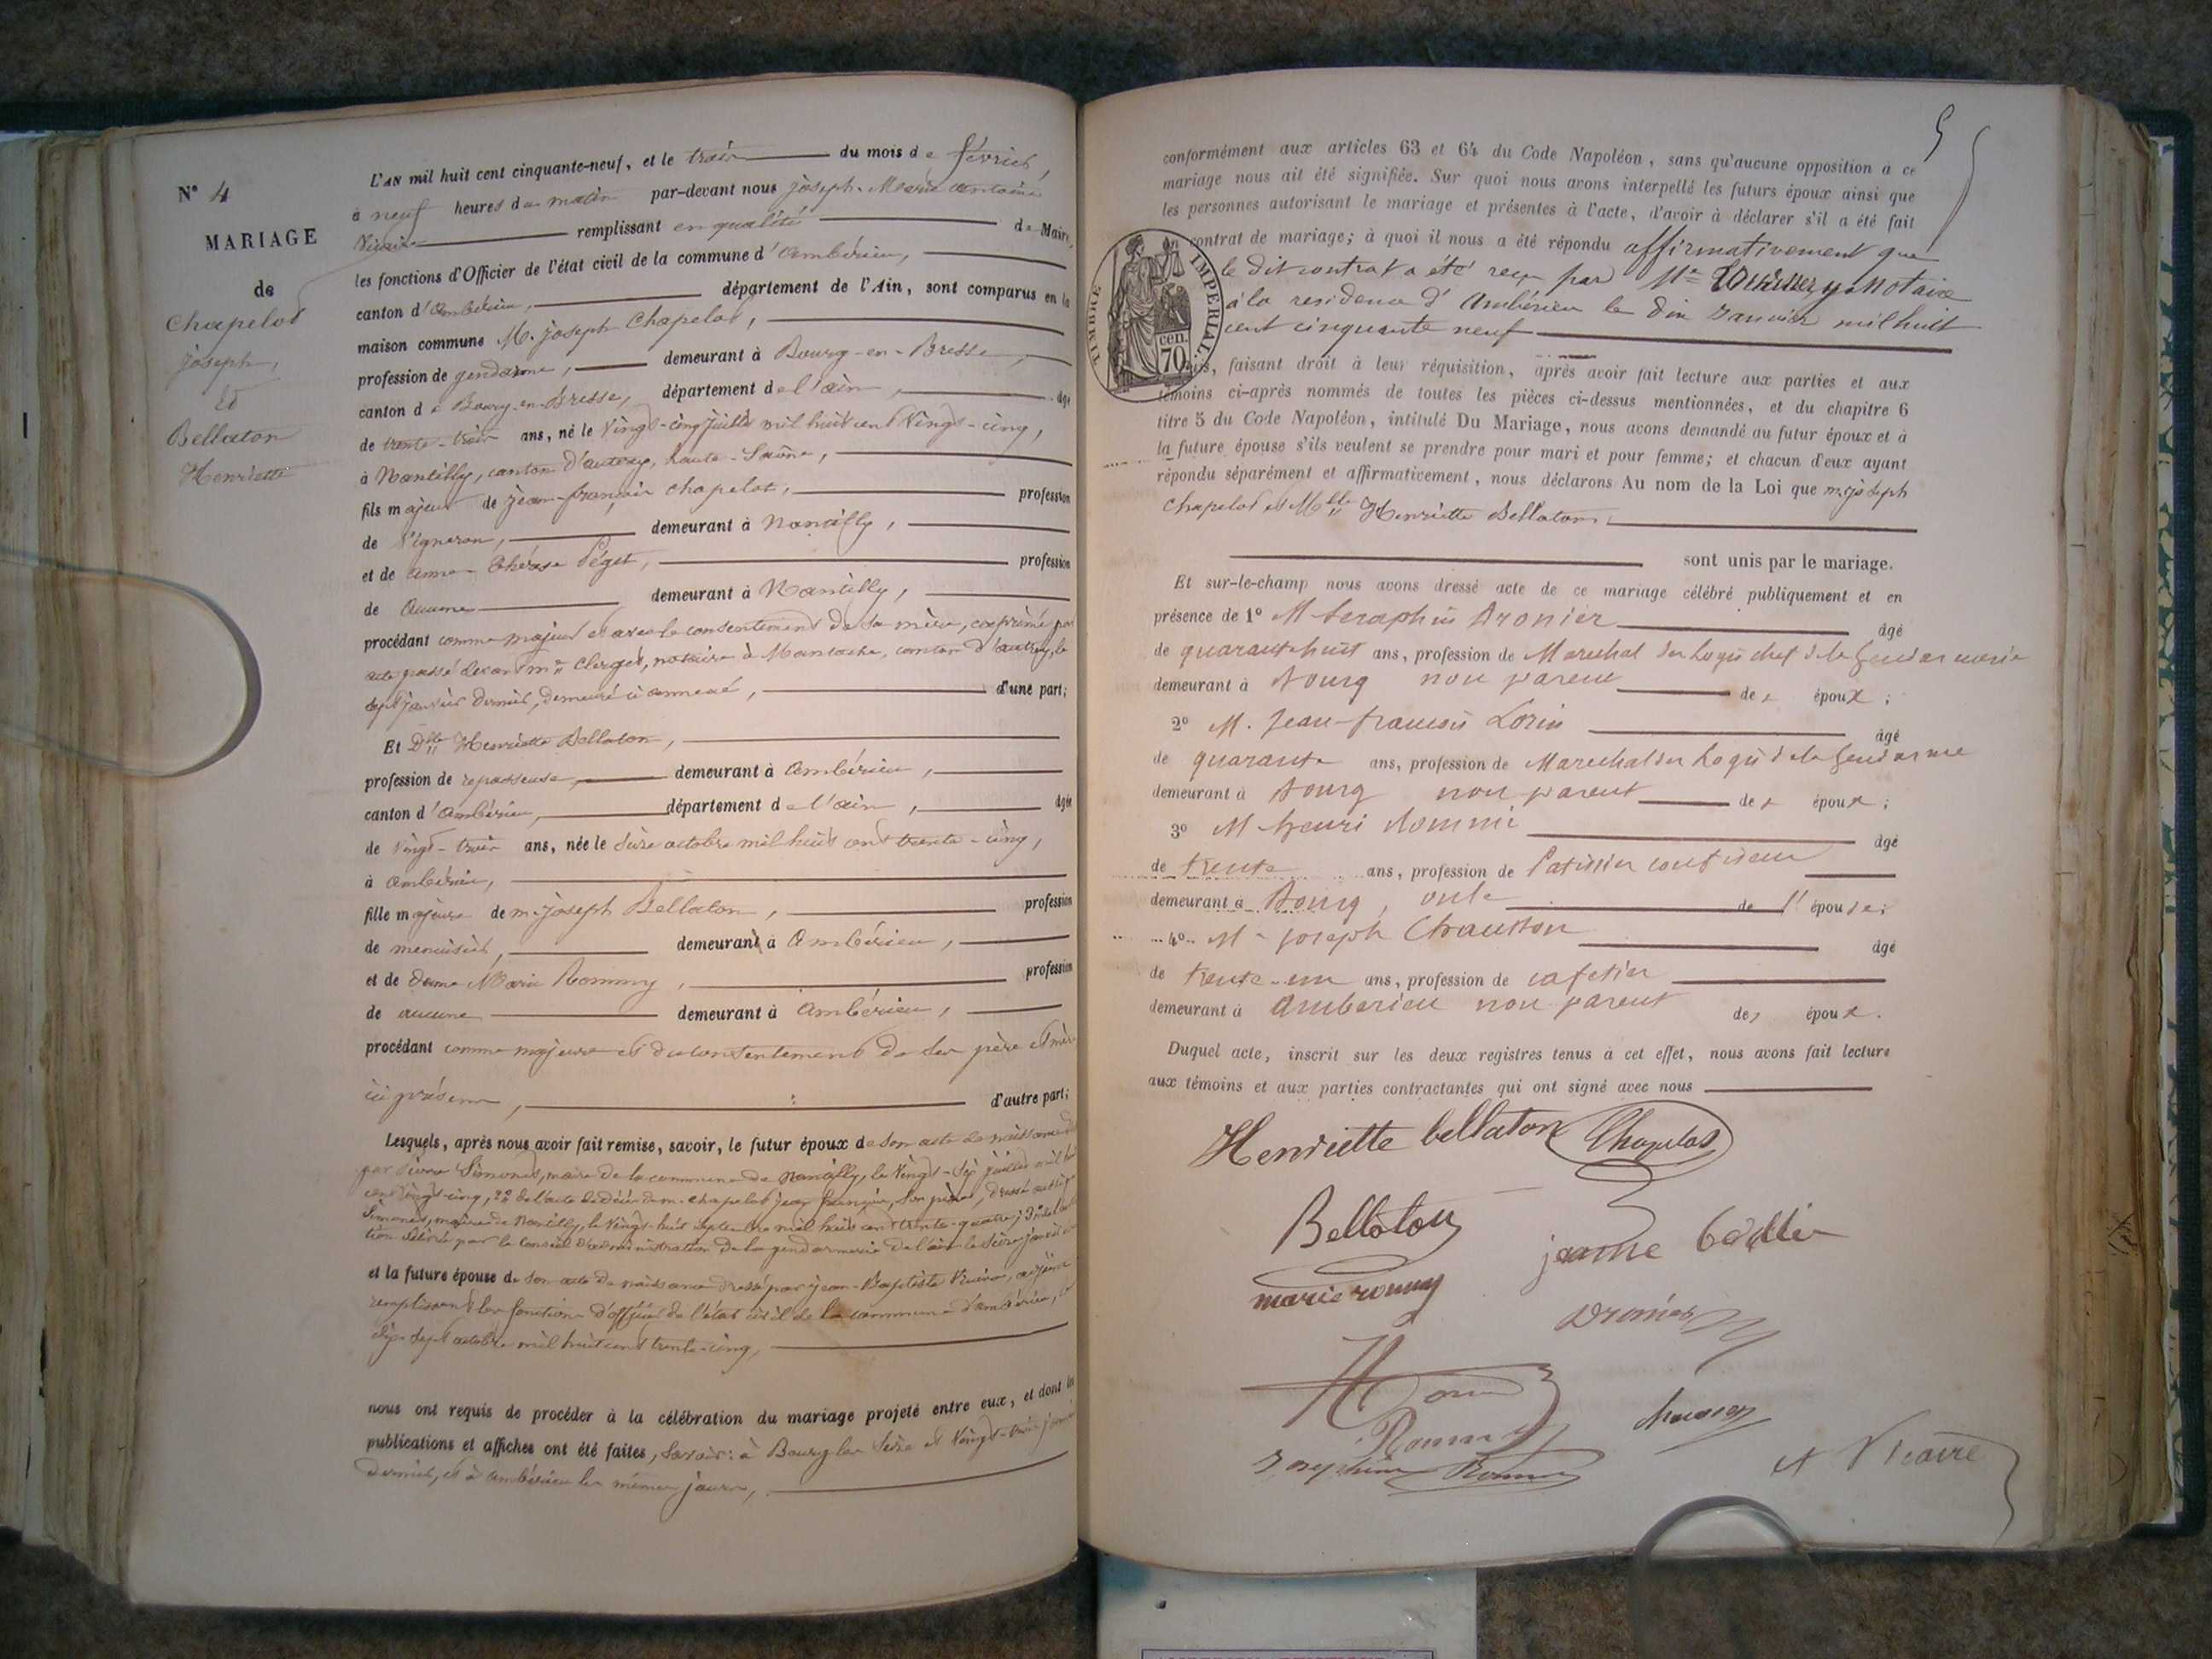 N° 4
MARIAGE
de
Chapelot
joseph,
Et
Bellaton
Henriette
L'AN mil huit cent cinquante-neuf, et le trois du mois de février,
à neuf heures du matin par-devant nous joseph-Marie antoine
Vicaire remplissant en qualité de Maire,
les fonctions d'Officier de l'état civil de la commune d'ambérieu,
canton d'ambérieu, département de l'Ain, sont comparus en la
maison commune M. joseph Chapelot,
profession de gendarme, demeurant à Bourg-en-Bresse,
canton de Bourg-en-Bresse, département de l'ain, âgé
de trente-trois ans, né le vingt-cinq juillet mil huit cent vingt-cinq,
à Nantilly, canton d'autrey, haute-Saône,
fils majeur de jean-françois chapelot, profession
de vigneron, demeurant à Nantilly,
et de anne Thérèse Péget, profession
de aucune demeurant à Nantilly,
procédant comme majeur et avec le consentement de sa mère, exprimé par
acte passé devant me Clerget, notaire à Mantoche, canton d'autrey, le
sept janvier dernier, demeuré ci annexé, d'une part;
Et Dlle Henriette Bellaton,
profession de repasseuse, demeurant à ambérieu,
canton d'ambérieu, département de l'ain, âgée
de vingt-trois ans, née le seize octobre mil huit cent trente-cinq,
à ambérieu,
fille majeure de m. joseph Bellaton, profession
de menuisier, demeurant à ambérieu,
et de dame Marie Rommy, profession
de aucune demeurant à ambérieu,
procédant comme majeure et du consentement de ses père et mère
ici présens, d'autre part;
Lesquels, après nous avoir fait remise, savoir, le futur époux de son acte de naissance
par Pierre Simonet, maire de la commune de Nantilly, le vingt-six juillet mil huit
cent vingt-cinq, 2° de l'acte de décès de m. chapelot jean françois, son père, dressé
Simonet, maire de Nantilly, le vingt-huit septembre mil huit cent trente-quatre; 3°
délivrée par le conseil d'administration de la gendarmerie de l'ain le seize janvier
et la future épouse de son acte de naissance dressé par jean-Baptiste Vicaire, adjoint
remplissant les fonctions d'officier de l'état civil de la commune d'ambérieu, le
dix sept octobre mil huit cent trente-cinq,
nous ont requis de procéder à la célébration du mariage projeté entre eux, et dont les
publications et affiches ont été faites, savoir: à Bourg les seize et vingt-trois janvier
dernier, et à ambérieu les mêmes jours,
5
conformément aux articles 63 et 64 du Code Napoléon, sans qu'aucune opposition à ce
mariage nous ait été signifiée. Sur quoi nous avons interpellé les futurs époux ainsi que
les personnes autorisant le mariage et présentes à l'acte, d'avoir à déclarer s'il a été fait
un contrat de mariage; à quoi il nous a été répondu affirmativement que
le dit contrat a été reçu par Me notaire
à la residence d'Ambérieu le dix Janvier mil huit
cent cinquante neuf
TIMBRE IMPERIAL.
70 cen.
faisant droit à leur réquisition, après avoir fait lecture aux parties et aux
témoins ci-après nommés de toutes les pièces ci-dessus mentionnées, et du chapitre 6
titre 5 du Code Napoléon, intitulé Du Mariage, nous avons demandé au futur époux et à
la future épouse s'ils veulent se prendre pour mari et pour femme; et chacun d'eux ayant
répondu séparément et affirmativement, nous déclarons Au nom de la Loi que m. joseph
Chapelot et Mlle Henriette Bellaton,
sont unis par le mariage.
Et sur-le-champ nous avons dressé acte de ce mariage célébré publiquement et en
présence de 1° M Seraphin Dronier âgé
de quarante huit ans, profession de Marechal des Logis chef de la Gendarmerie
demeurant à Bourg non parent des époux;
2° M. Jean-francois Lorin âgé
de quarante ans, profession de Marechal des Logis de la Gendarme
demeurant à Bourg non parent des époux;
3° M henri Rommi âgé
de trente ans, profession de Patissier confiseur
demeurant à Bourg, oncle de l'épouse;
4° Mr joseph Chausson âgé
de trente-un ans, profession de cafetier
demeurant à Amberieu non parent des époux.
Duquel acte, inscrit sur les deux registres tenus à cet effet, nous avons fait lecture
aux témoins et aux parties contractantes qui ont signé avec nous
Henriette bellaton Chapelot
Bellaton
marie rommy
Dronier
Rommy
chausson
Josephine Rommy
A Vicaire